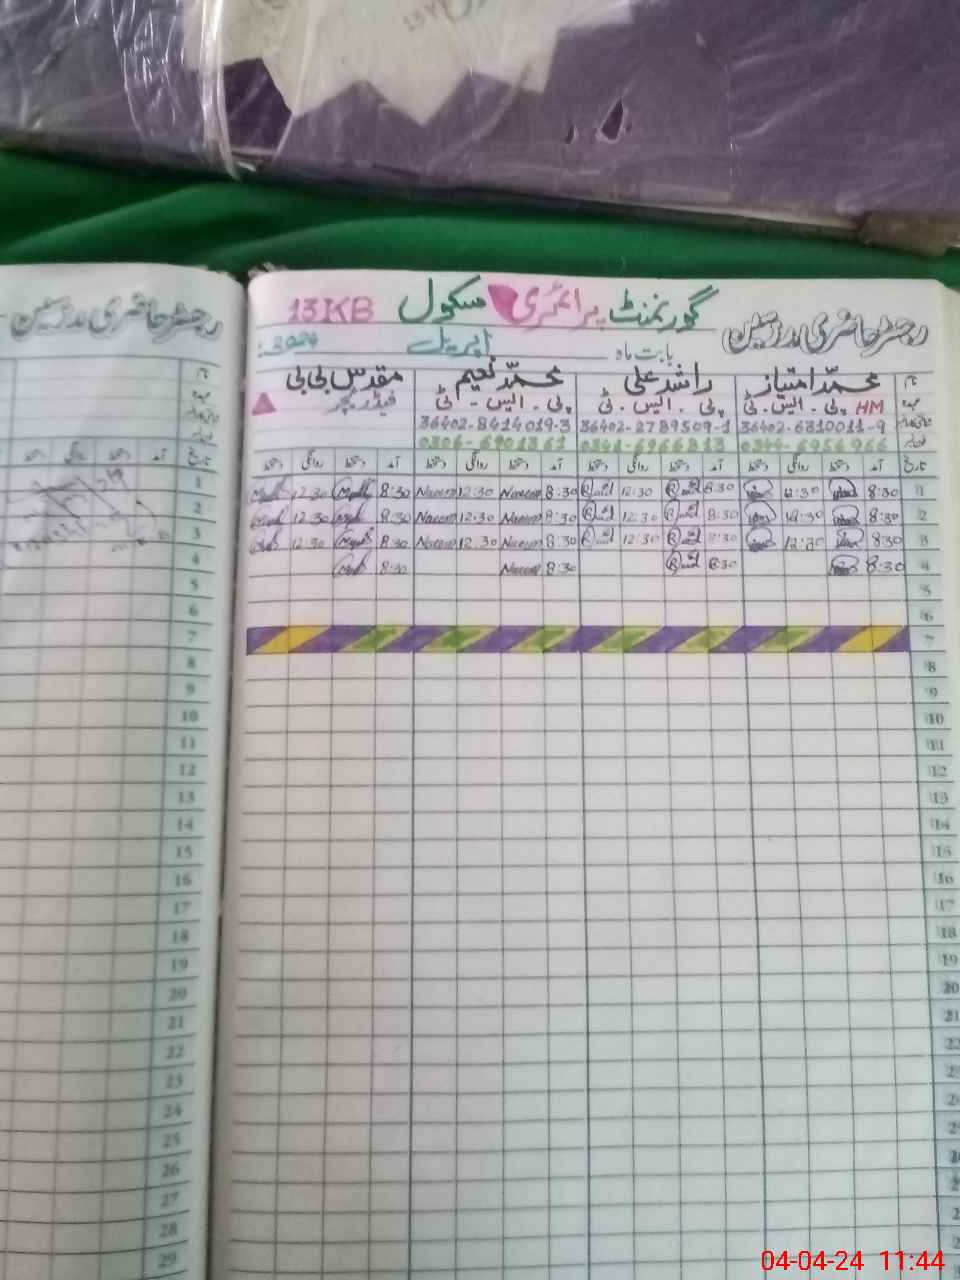 رجسٹر حاضری مدرسین
گورنمنٹ پرائمری سکول 13KB
رجسٹر حاضری مدرسین
بابت ماہ اپریل 2024
نام محمد امتیاز راشد علی محمد نعیم مقدس بی بی
عہدہ پی۔ایس۔ٹی HM پی۔ایس۔ٹی پی۔ایس۔ٹی فیڈر ٹیچر
36402-6310011-9 36402-2789509-1 36402-8414019-3
0344-6956966 0341-6966813 0306-6901361
تاریخ آمد دستخط روانگی دستخط آمد دستخط روانگی دستخط آمد دستخط روانگی دستخط آمد دستخط روانگی دستخط
1 8:30 12:30 8:30 12:30 8:30 Naeem 12:30 Naeem 8:30 12:30
2 8:30 12:30 8:30 12:30 8:30 Naeem 12:30 Naeem 8:30 12:30
3 8:30 12:30 8:30 12:30 8:30 Naeem 12:30 Naeem 8:30 12:30
4 8:30 8:30 8:30 Naeem 8:30
5
6
7
8
9
10
11
12
13
14
15
16
17
18
19
20
21
22
23
تاریخ آمد دستخط روانگی دستخط
1
2
3
4
5
6
7
8
9
10
11
12
13
14
15
16
17
18
19
20
21
22
23
24
25
26
27
28
29
04-04-24 11:44